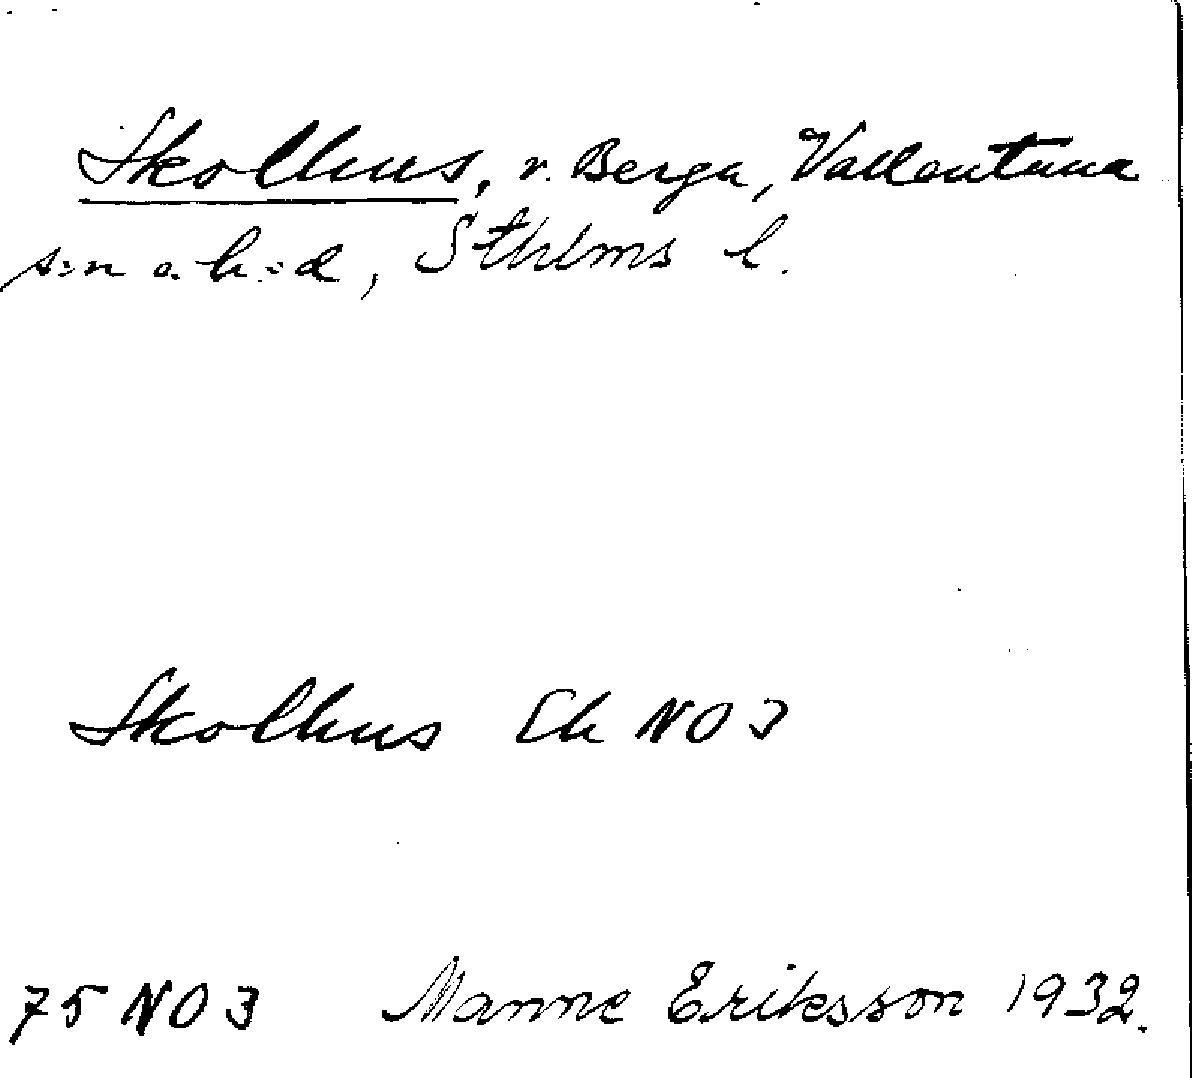 Skolhus, v. Berga, Vallentuna
s:n o. h:d, Sthlms l.
Skolhus Ek NO 3
75 NO 3 Manne Eriksson 1932.